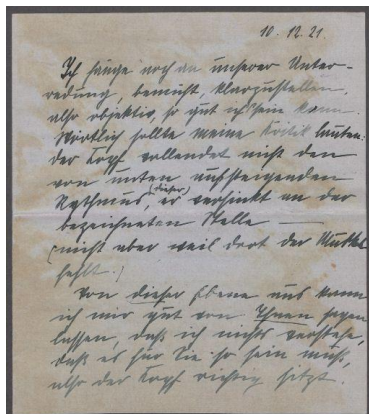 10. 12. 21.
Ich hänge noch an unserer Unter-
redung, bemüht, klarzustellen
also objektiv, so gut ich's sein kann.
Wörtlich sollte meine Kritik lauten:
der Kopf vollendet nicht den
von unten aufsteigenden
Rythmus, (dieser) er versinkt an der
bezeichneten Stelle —
(nicht aber weil dort der Muskel
fehlt.)
Von dieser Ebene aus kann
ich mir gut von Ihnen sagen
lassen, daß ich nichts verstehe,
daß es für Sie so sein muß,
also der Kopf richtig sitzt.